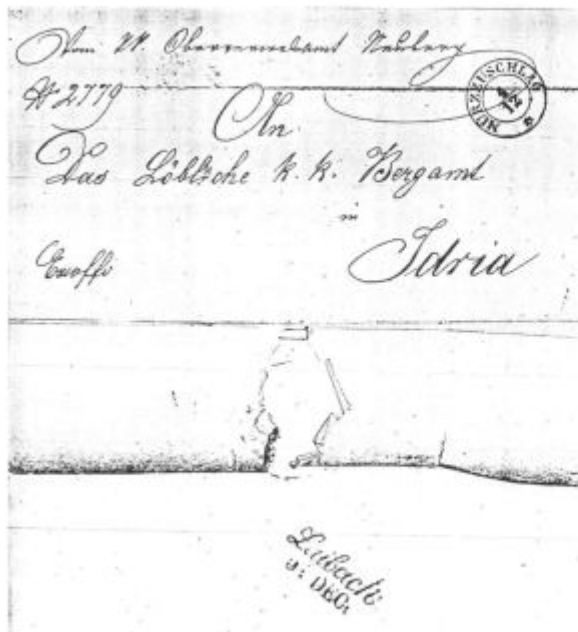 Vom k.k. Oberverwesamt Neuberg
MÜRZZUSCHLAG
№ 2779
An
Das Löbliche k. k. Bergamt
in
Idria
Exoffi
Laibach
DEC: